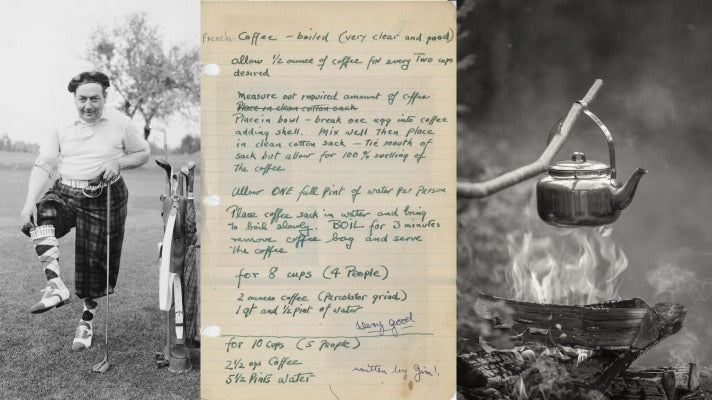 French Coffee - boiled (very clear and good)
allow 1/2 ounce of coffee for every Two cups
desired
measure out required amount of coffee
Place in clean cotton sack
Place in bowl - break one egg into coffee
adding shell. Mix well then place
in clean cotton sack - tie mouth of
sack but allow for 100% swelling of
the coffee
Allow ONE full pint of water per person
Place coffee sack in water and bring
to boil slowly. BOIL for 3 minutes
remove coffee bag and serve
the coffee
for 8 cups (4 People)
2 ounces coffee (Percolator grind)
1 qt and 1/2 pint of water
Very good
for 10 cups (5 People)
2 1/2 ozs Coffee
5 1/2 Pints Water
written by Gin!